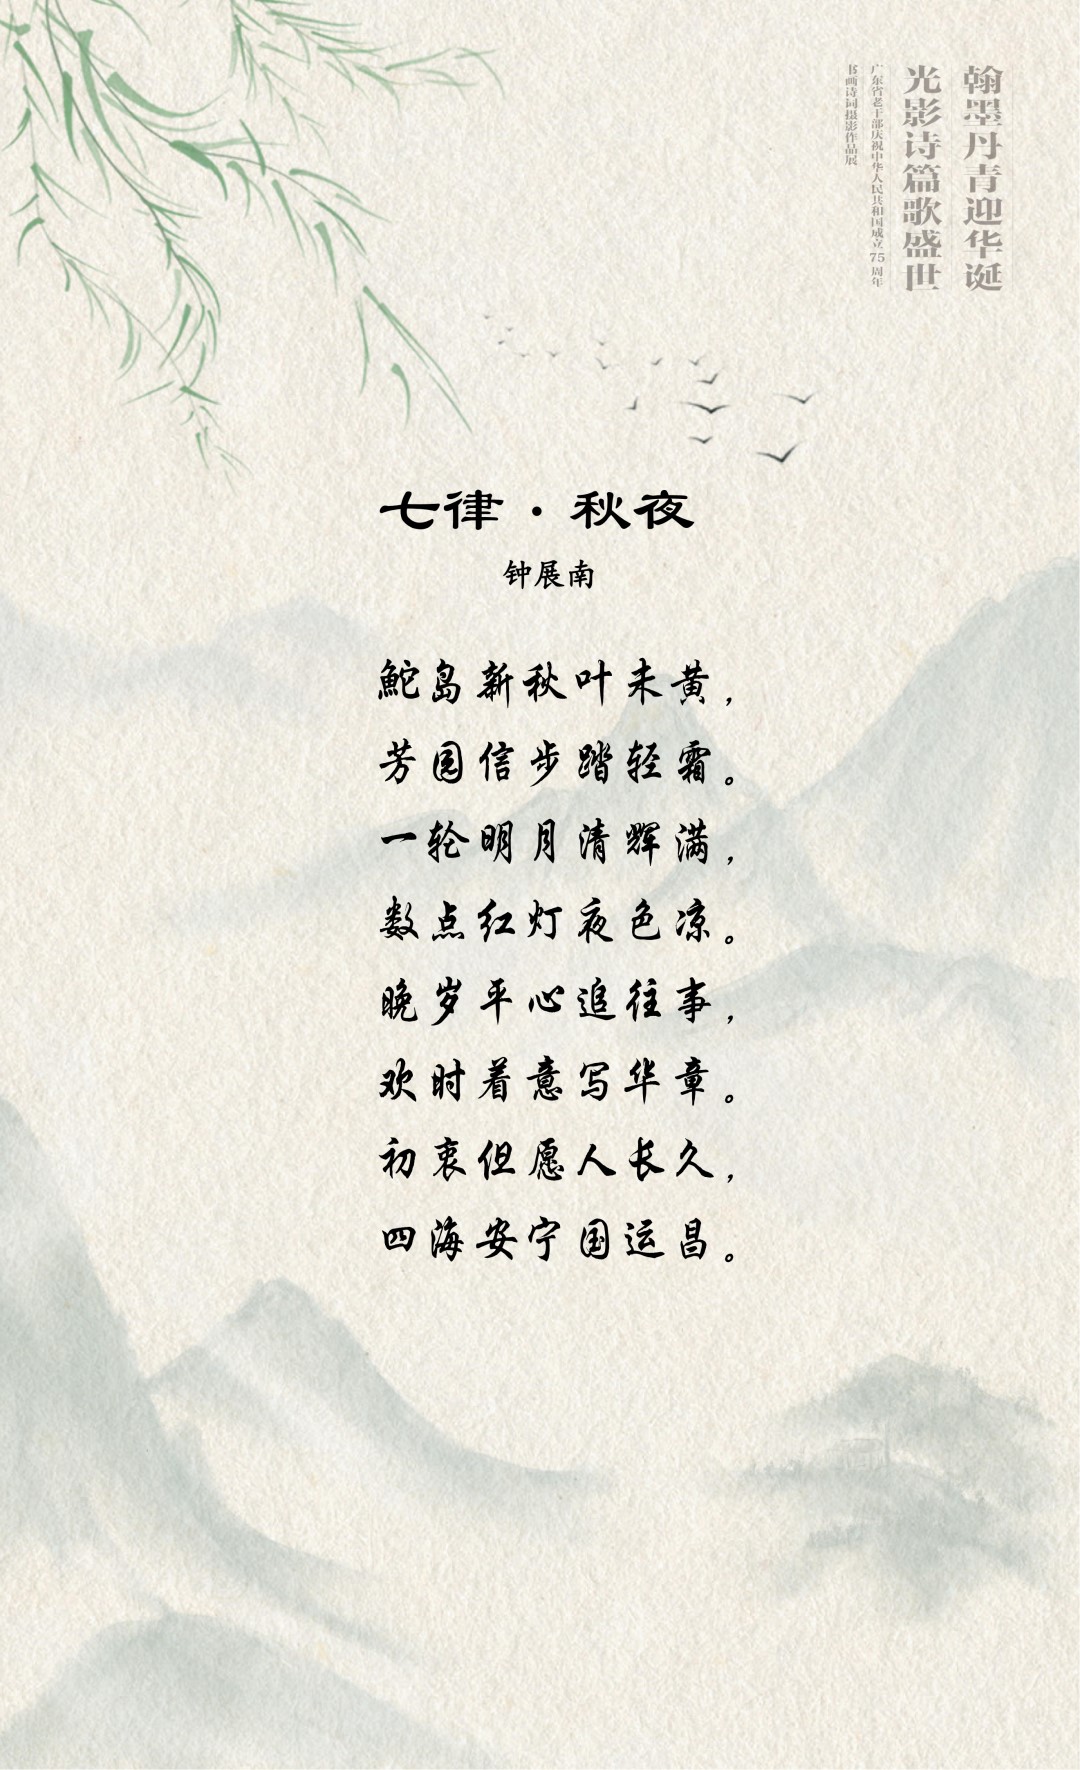 翰墨丹青迎华诞
光影诗篇歌盛世
广东省老干部庆祝中华人民共和国成立75周年
书画诗词摄影作品展
七律·秋夜
钟展南
鮀岛新秋叶未黄，
芳园信步踏轻霜。
一轮明月清辉满，
数点红灯夜色凉。
晚岁平心追往事，
欢时着意写华章。
初衷但愿人长久，
四海安宁国运昌。